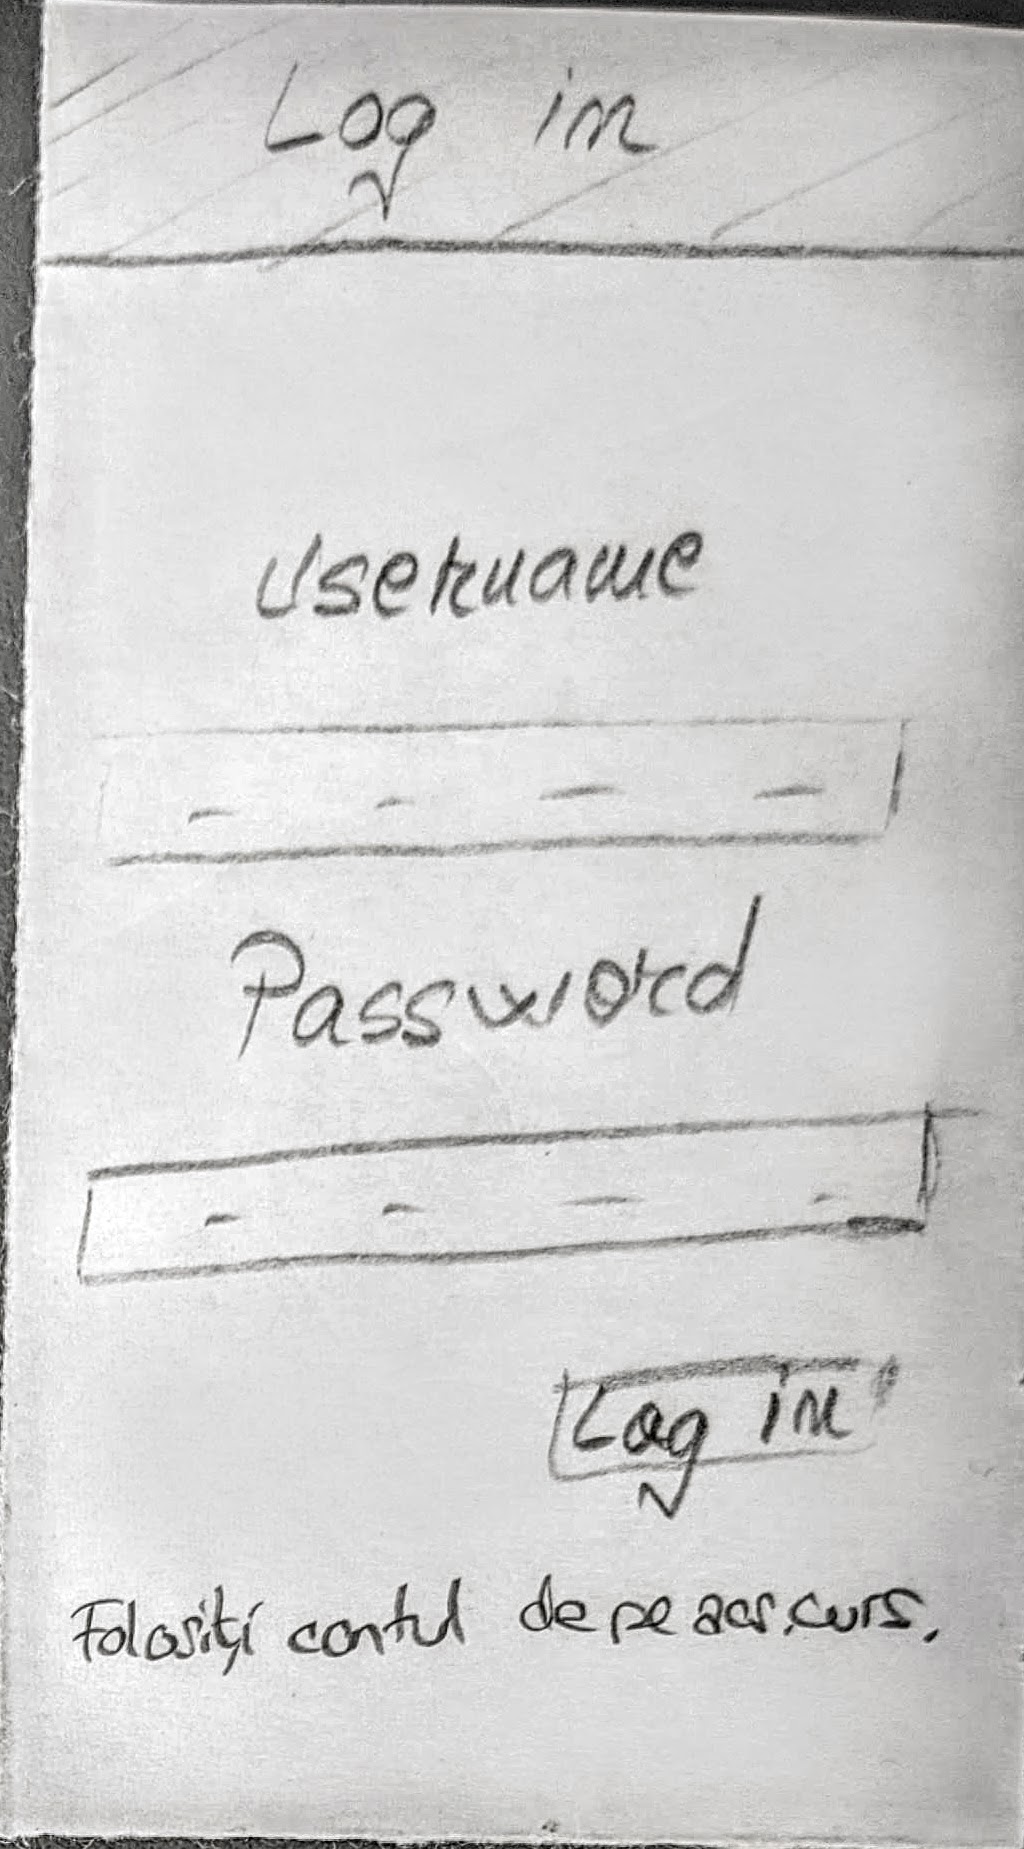 Log in
Username
Password
Log in
Folosiți contul de pe acs.curs.